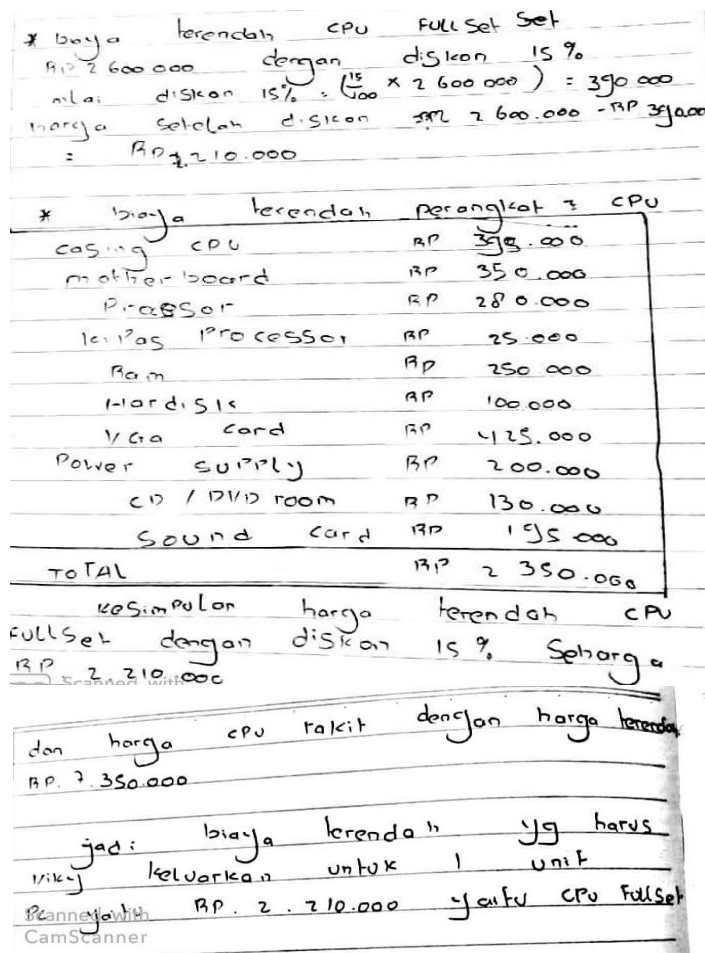 * biaya terendah CPU Full Set Set
RP 2 600 000 dengan diskon 15 %
nilai diskon 15% = (15/100 × 2 600 000 ) = 390 000
harga setelah diskon 2 600.000 - RP 390.000
= RP 2.210.000
* biaya terendah perangkat CPU
casing CPU RP .000
motherboard RP 350.000
Processor RP 280.000
kipas Processor RP 25.000
Ram RP 250 000
Hardisk RP 100.000
VGA card RP 425.000
Power SUPPly RP 200.000
CD / DVD room RP 130.000
Sound card RP 195 000
TOTAL RP 2 350.000
kesimpulan harga terendah CPU
FULLSet dengan diskon 15 % Seharga
RP 2 210 000
Scanned with
dan harga CPU rakit dengan harga terendah
RP. 2.350.000
jadi biaya terendah yg harus
Viky keluarkan untuk 1 unit
PC yaitu RP. 2.210.000 yaitu CPU FullSet
Scanned with
CamScanner